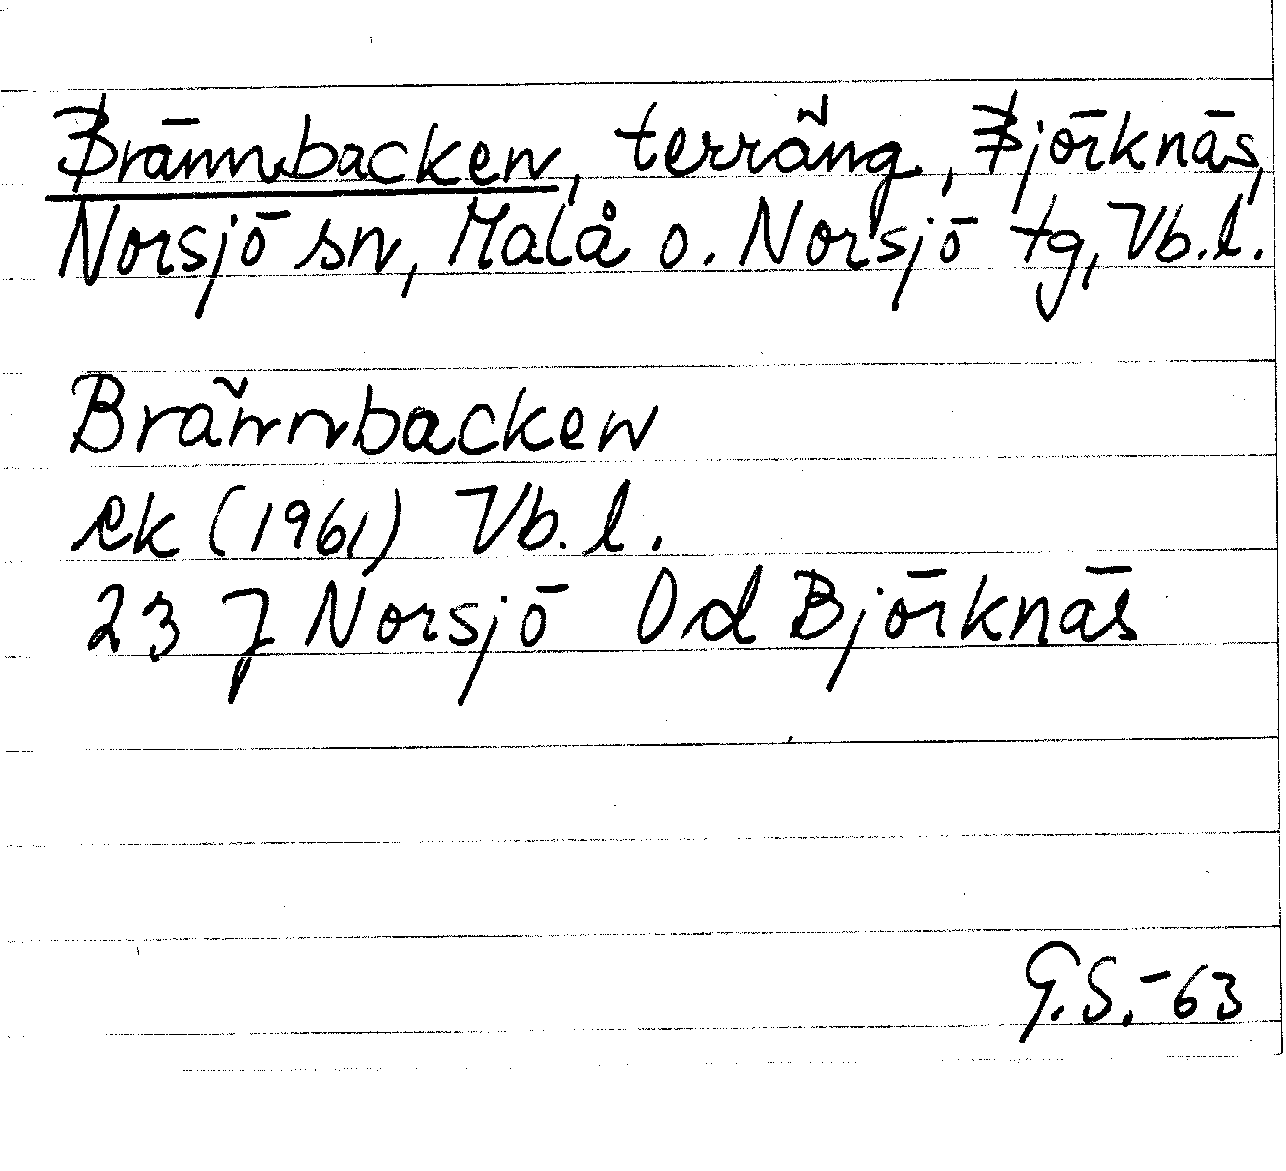 Brännbacken, terräng, Björknäs,
Norsjö sn, Malå o. Norsjö tg, Vb.l.
Brännbacken
ek (1961) Vb. l.
23 J Norsjö 0d Björknäs
G.S.-63